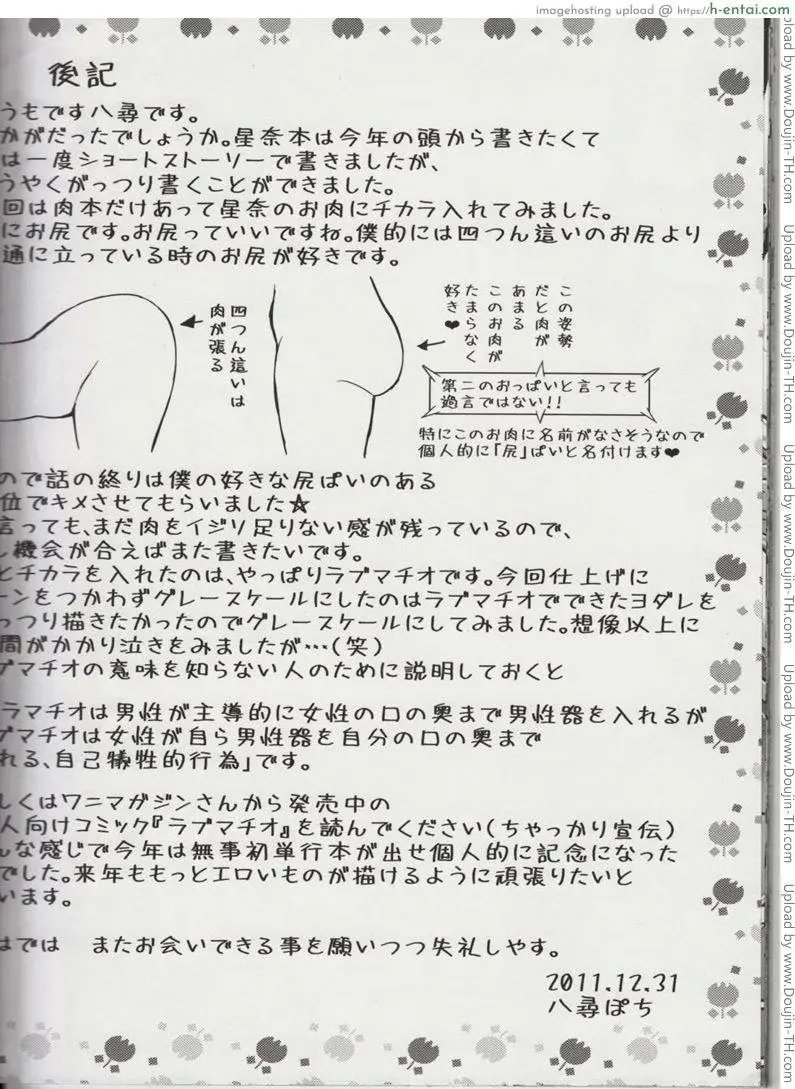 imagehosting upload @ https://h-entai.com
後記
うもです八尋です。
かがだったでしょうか。星奈本は今年の頭から書きたくて
は一度ショートストーリーで書きましたが、
うやくがっつり書くことができました。
回は肉本だけあって星奈のお肉にチカラ入れてみました。
にお尻です。お尻っていいですね。僕的には四つん這いのお尻より
通に立っている時のお尻が好きです。
四つん這いは
肉が張る
この姿勢
だと肉が
あまる
このお肉が
たまらなく
好き♥
第二のおっぱいと言っても
過言ではない!!
特にこのお肉に名前がなさそうなので
個人的に「尻」ぱいと名付けます♥
ので話の終りは僕の好きな尻ぱいのある
位でキメさせてもらいました★
言っても、まだ肉をイジリ足りない感が残っているので、
し機会が合えばまた書きたいです。
とチカラを入れたのは、やっぱりラブマチオです。今回仕上げに
ーンをつかわずグレースケールにしたのはラブマチオでできたヨダレを
っつり描きたかったのでグレースケールにしてみました。想像以上に
間がかかり泣きをみましたが…(笑)
ブマチオの意味を知らない人のために説明しておくと
ラマチオは男性が主導的に女性の口の奥まで男性器を入れるが
ブマチオは女性が自ら男性器を自分の口の奥まで
れる、自己犠牲的行為」です。
しくはワニマガジンさんから発売中の
人向けコミック『ラブマチオ』を読んでください(ちゃっかり宣伝)
んな感じで今年は無事初単行本が出せ個人的に記念になった
でした。来年ももっとエロいものが描けるように頑張りたいと
います。
はでは　またお会いできる事を願いつつ失礼しやす。
2011.12.31
八尋ぽち
pload by www.Doujin-TH.com
Upload by www.Doujin-TH.com
Upload by www.Doujin-TH.com
Upload by www.Doujin-TH.com
Upload by www.Doujin-TH.com